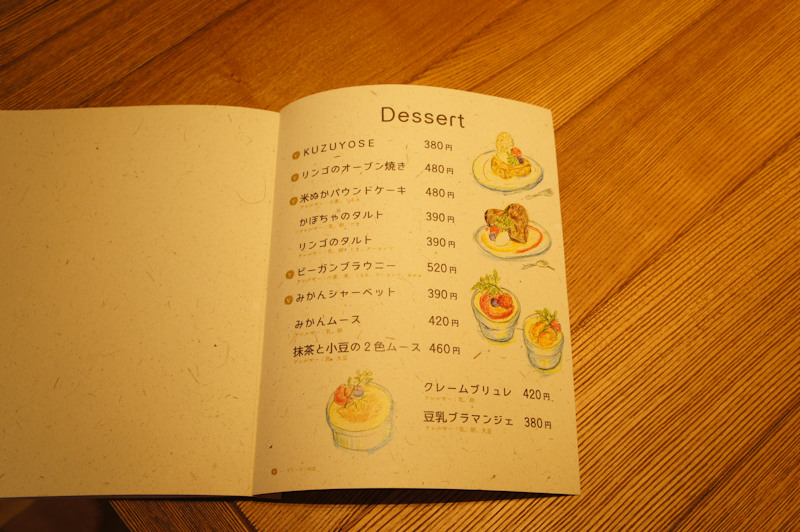 Dessert
KUZUYOSE 380円
リンゴのオーブン焼き 480円
米ぬかパウンドケーキ 480円
かぼちゃのタルト 390円
リンゴのタルト 390円
ビーガンブラウニー 520円
みかんシャーベット 390円
みかんムース 420円
抹茶と小豆の2色ムース 460円
クレームブリュレ 420円
豆乳ブラマンジェ 380円